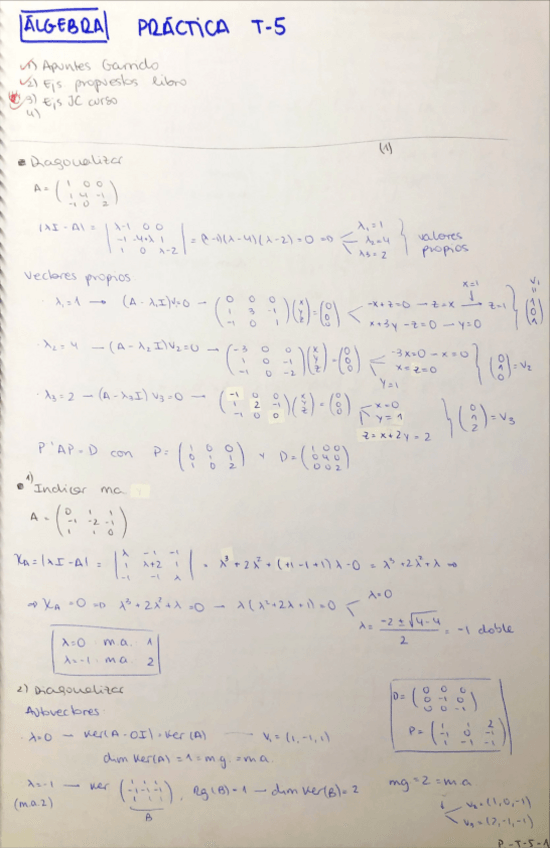 ÁLGEBRA PRÁCTICA T-5
1) Apuntes Garrido
2) Ejs propuestos libro
3) Ejs JC curso
4)
(1)
• Diagonalizar
A = ( 1 0 0 / 1 4 -1 / -1 0 2 )
|λI-A| = | λ-1 0 0 / -1 -4+λ 1 / 1 0 λ-2 | = (λ-1)(λ-4)(λ-2) = 0 ⇒ λ₁=1 λ₂=4 λ₃=2 } valores propios
Vectores propios
· λ₁=1 → (A-λ₁I)v₁=0 → ( 0 0 0 / 1 3 -1 / -1 0 1 ) ( x / y / z ) = ( 0 / 0 / 0 ) -x+z=0 → z=x x=1 → z=1 x+3y-z=0 → y=0 } v₁ = ( 1 / 0 / 1 )
· λ₂=4 → (A-λ₂I)v₂=0 → ( -3 0 0 / 1 0 -1 / -1 0 -2 ) ( x / y / z ) = ( 0 / 0 / 0 ) -3x=0 → x=0 x=z=0 y=1 } ( 0 / 1 / 0 ) = v₂
· λ₃=2 → (A-λ₃I)v₃=0 → ( -1 0 0 / 1 2 -1 / -1 0 0 ) ( x / y / z ) = ( 0 / 0 / 0 ) x=0 y=1 z=x+2y=2 } ( 0 / 1 / 2 ) = v₃
P⁻¹AP=D con P= ( 1 0 0 / 0 1 1 / 1 0 2 ) y D= ( 1 0 0 / 0 4 0 / 0 0 2 )
• 1) Indicar ma
A = ( 0 1 1 / -1 -2 -1 / 1 1 0 )
χA = |λI-A| = | λ -1 -1 / 1 λ+2 1 / -1 -1 λ | = λ³+2λ²+(+1-1+1)λ-0 = λ³+2λ²+λ ⇒
⇒ χA = 0 ⇒ λ³+2λ²+λ=0 → λ(λ²+2λ+1)=0 λ=0 λ= (-2±√4-4)/2 = -1 doble
λ=0 m.a. 1
λ=-1 m.a 2
2) Diagonalizar
Autovectores:
· λ=0 → Ker(A-0I)=Ker(A) → v₁=(1,-1,1)
dim Ker(A)=1=m.g.=m.a.
D= ( 0 0 0 / 0 -1 0 / 0 0 -1 )
P= ( 1 1 2 / -1 0 -1 / 1 -1 -1 )
λ=-1 → Ker ( 1 1 1 / -1 -1 -1 / 1 1 1 ) , Rg(B)=1 → dim Ker(B)=2 mg=2=m.a
(m.a.2) B
v₂=(1,0,-1)
v₃=(2,-1,-1)
P-T-5-1